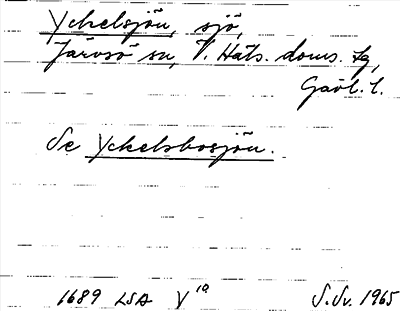 Yckelsjön, sjö,
Järvsö sn, V. Häls. doms. tg,
Gävl. l.
Se Yckelsbosjön.
1689 LSA V 1a S.Sv. 1965